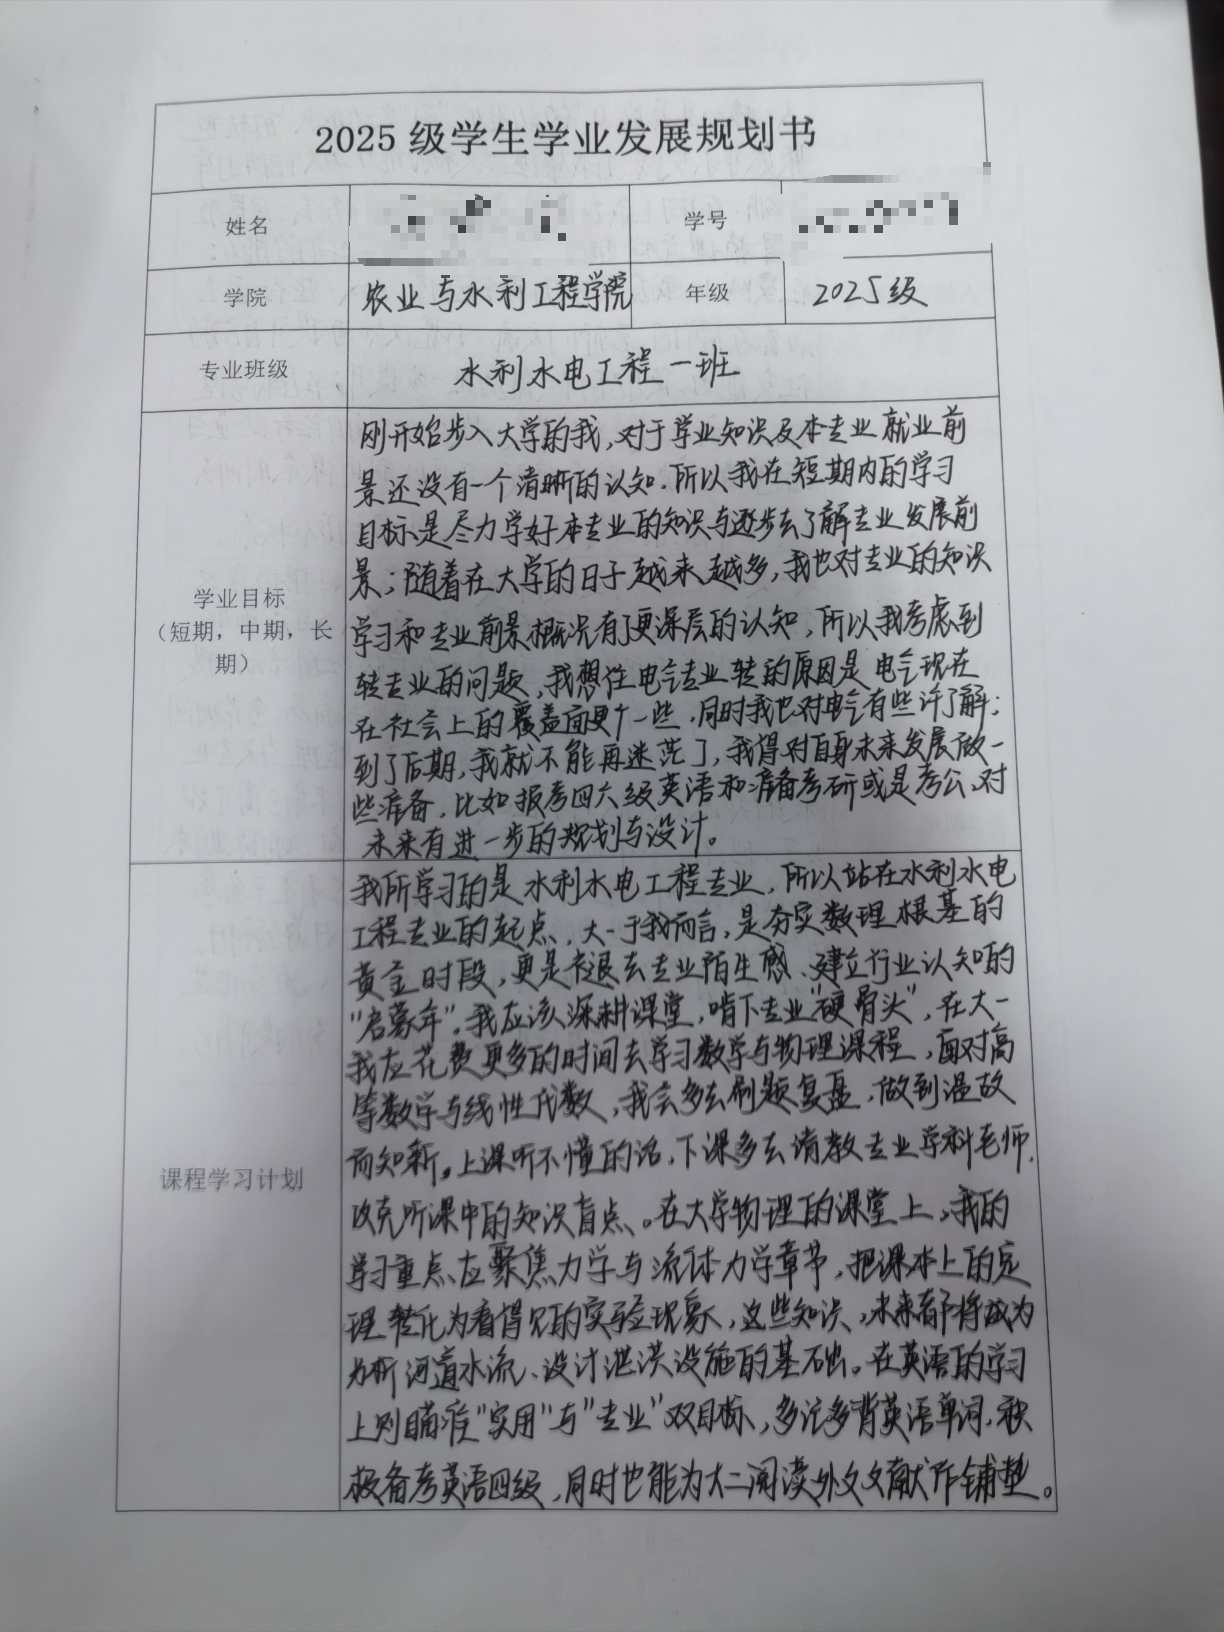 2025 级学生学业发展规划书
姓名
学号
学院
农业与水利工程学院
年级
2025级
专业班级
水利水电工程一班
学业目标
（短期，中期，长
期）
刚开始步入大学的我，对于学业知识及本专业就业前
景还没有一个清晰的认知．所以我在短期内的学习
目标是尽力学好本专业的知识与逐步去了解专业发展前
景；随着在大学的日子越来越多，我也对专业的知识
学习和专业前景概况有了更深层的认知，所以我考虑到
转专业的问题，我想往电气专业转的原因是电气现在
在社会上的覆盖面更广一些，同时我也对电气有些许了解；
到了后期，我就不能再迷茫了，我得对自身未来发展做一
些准备．比如报考四六级英语和准备考研或是考公，对
未来有进一步的规划与设计。
课程学习计划
我所学习的是水利水电工程专业，所以站在水利水电
工程专业的起点，大一于我而言，是夯实数理根基的
黄金时段，更是褪去专业陌生感、建立行业认知的
“启蒙年”。我应该深耕课堂，啃下专业“硬骨头”，在大一
我应花费更多的时间去学习数学与物理课程，面对高
等数学与线性代数，我会多去刷题复盘，做到温故
而知新。上课听不懂的话，下课多去请教专业学科老师，
攻克听课中的知识盲点。在大学物理的课堂上，我的
学习重点应聚焦力学与流体力学章节，把课本上的定
理转化为看得见的实验现象，这些知识，未来都将成为
分析河道水流、设计泄洪设施的基础。在英语的学习
上则瞄准“实用”与“专业”双目标，多记多背英语单词，积
极备考英语四级，同时也能为大二阅读外文文献作铺垫。